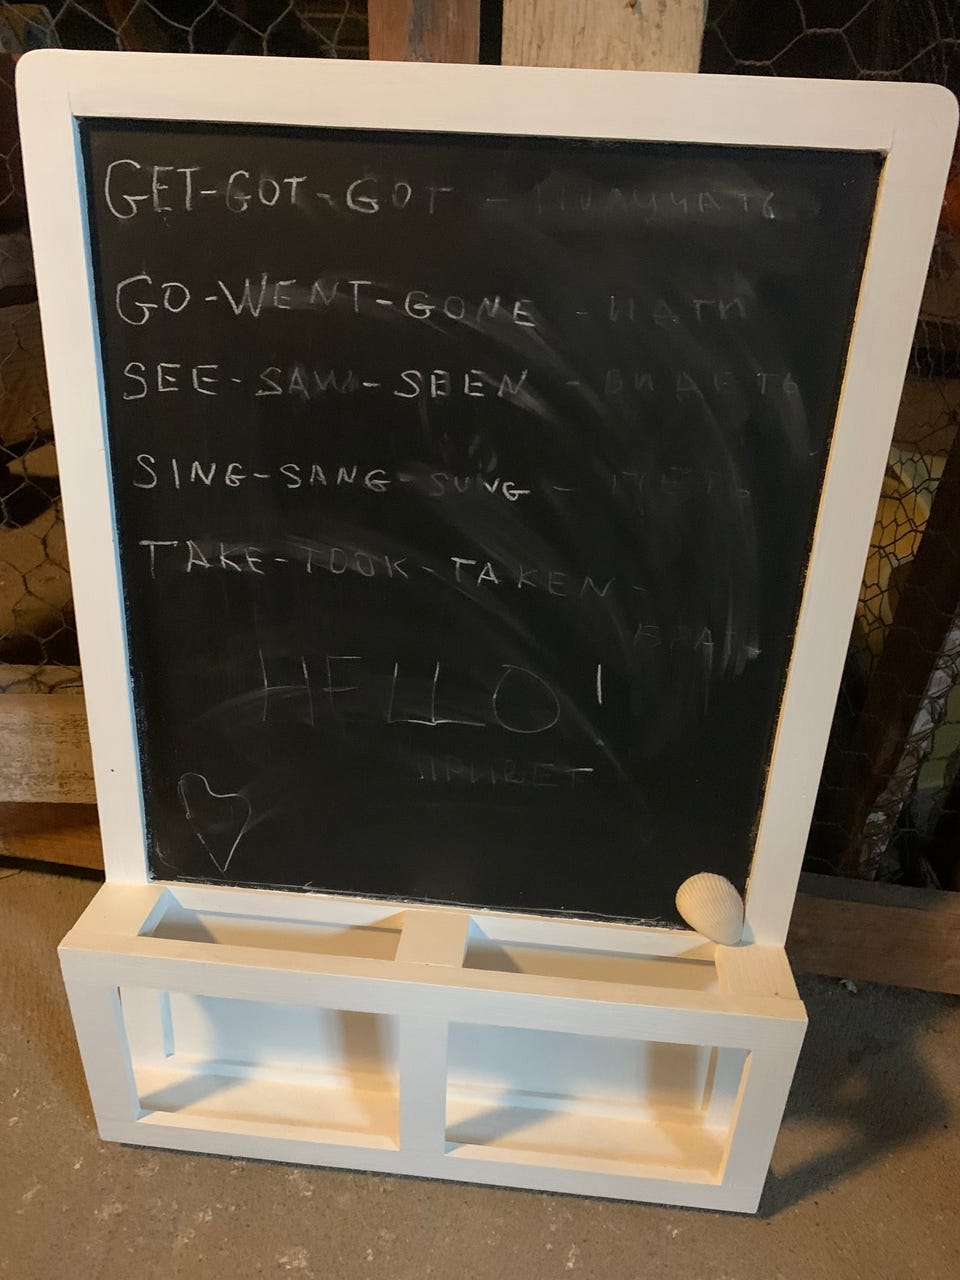 GET-GOT-GOT - ПОЛУЧАТЬ
GO-WENT-GONE - ИДТИ
SEE-SAW-SEEN - ВИДЕТЬ
SING-SANG-SUNG - ПЕТЬ
TAKE-TOOK-TAKEN -
БРАТЬ
HELLO!
ПРИВЕТ